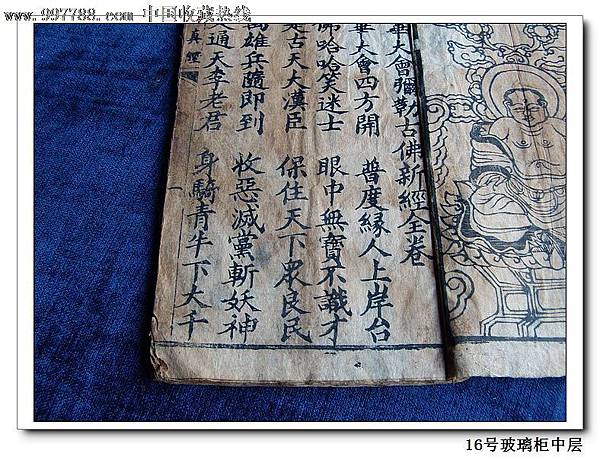 www.997788.com 中国收藏热线
華大會彌勒古佛新經全卷
華大會四方開 普度緣人上岸台
佛哈哈笑迷士 眼中無寶不識才
古天大漢臣 保住天下眾良民
萬雄兵隨即到 收惡滅黨斬妖神
通天李老君 身騎青牛下大千
真經 一
16号玻璃柜中层